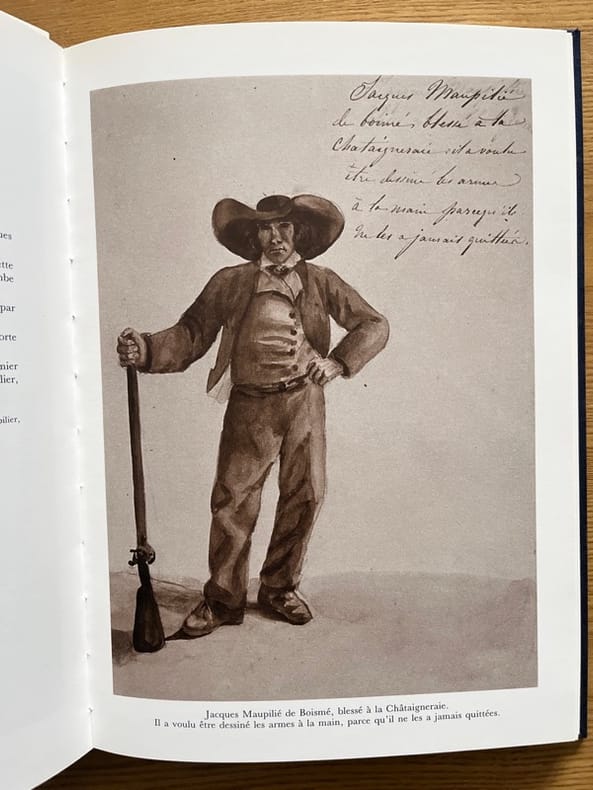 ues
tte
mbe
par
orte
nier
lier,
pilier,
Jacques Maupilié
de boimé, blessé à la
Chataigneraie. il a voulu
être dessiné les armes
à la main parcequ'il
ne les a jamais quittées.
Jacques Maupilié de Boismé, blessé à la Châtaigneraie.
Il a voulu être dessiné les armes à la main, parce qu'il ne les a jamais quittées.